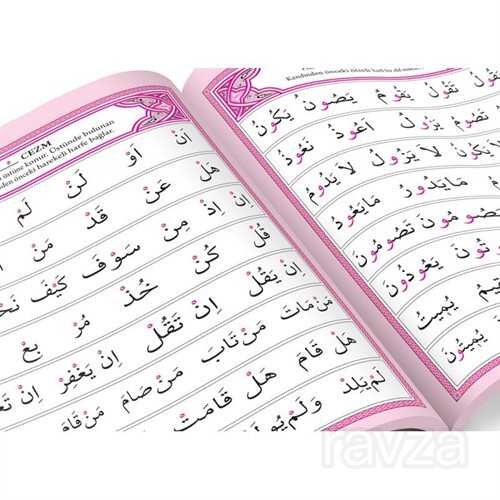 CEZM
üstüne konur. Üstünde bulunan
önceki harekeli harfe bağlar.
اِنْ اَوْ لَنْ لَمْ
هَلْ عَنْ قَدْ مَنْ
اِنْ اِذْ مِنْ سَوْفَ كَيْفَ
قُلْ كُنْ خُذْ مُرْ بِعْ
اِنْ يَقُلْ اِنْ تَقُلْ اِنْ يَغْفِرْ اِنْ
مَنْ مَاتَ مَنْ تَابَ مَنْ صَامَ
هَلْ قَامَ هَلْ قَامَتْ
لَمْ يَلِدْ وَلَمْ
Kendinden önceki ötreli harfi
تَقُولُ يَقُومُ يَصُونُ يَكُونُ
تَصُومُ يَزُولُ اَعُوذُ نَعُوذُ
لَا يَزُولُ لَا يَدُومُ
مَا يَقُولُ مَا يَعُودُ
مُونَ تَصُومُونَ
يَعُودُونَ
يُمِيتُ
يُمِيتُونَ
ravza